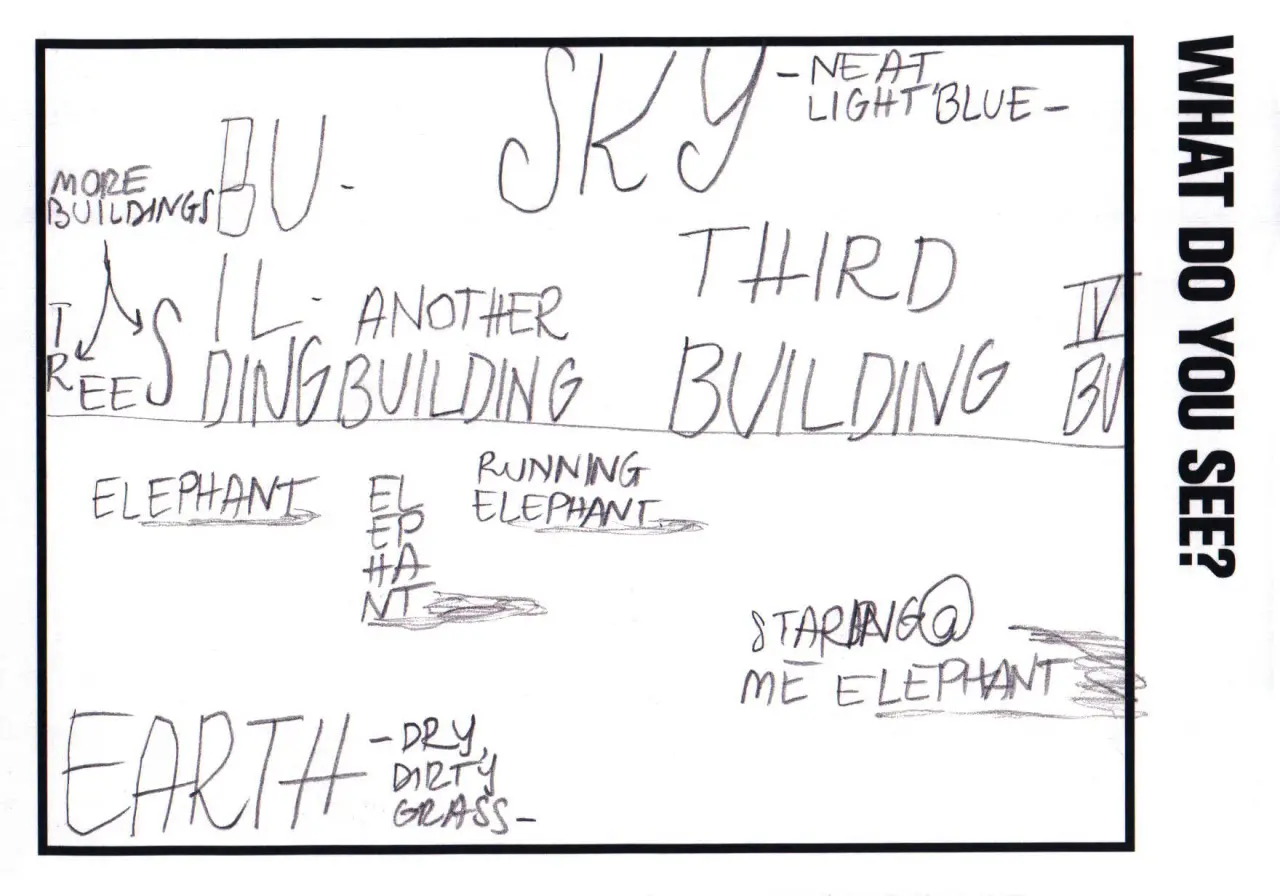 SKY
- NEAT
LIGHT BLUE -
MORE
BUILDINGS
BU-
IL-
DING
TREES
ANOTHER
BUILDING
THIRD
BUILDING
IV
BU
ELEPHANT
EL
EP
HA
NT
RUNNING
ELEPHANT
STARING @
ME ELEPHANT
EARTH
- DRY,
DIRTY
GRASS -
WHAT DO YOU SEE?